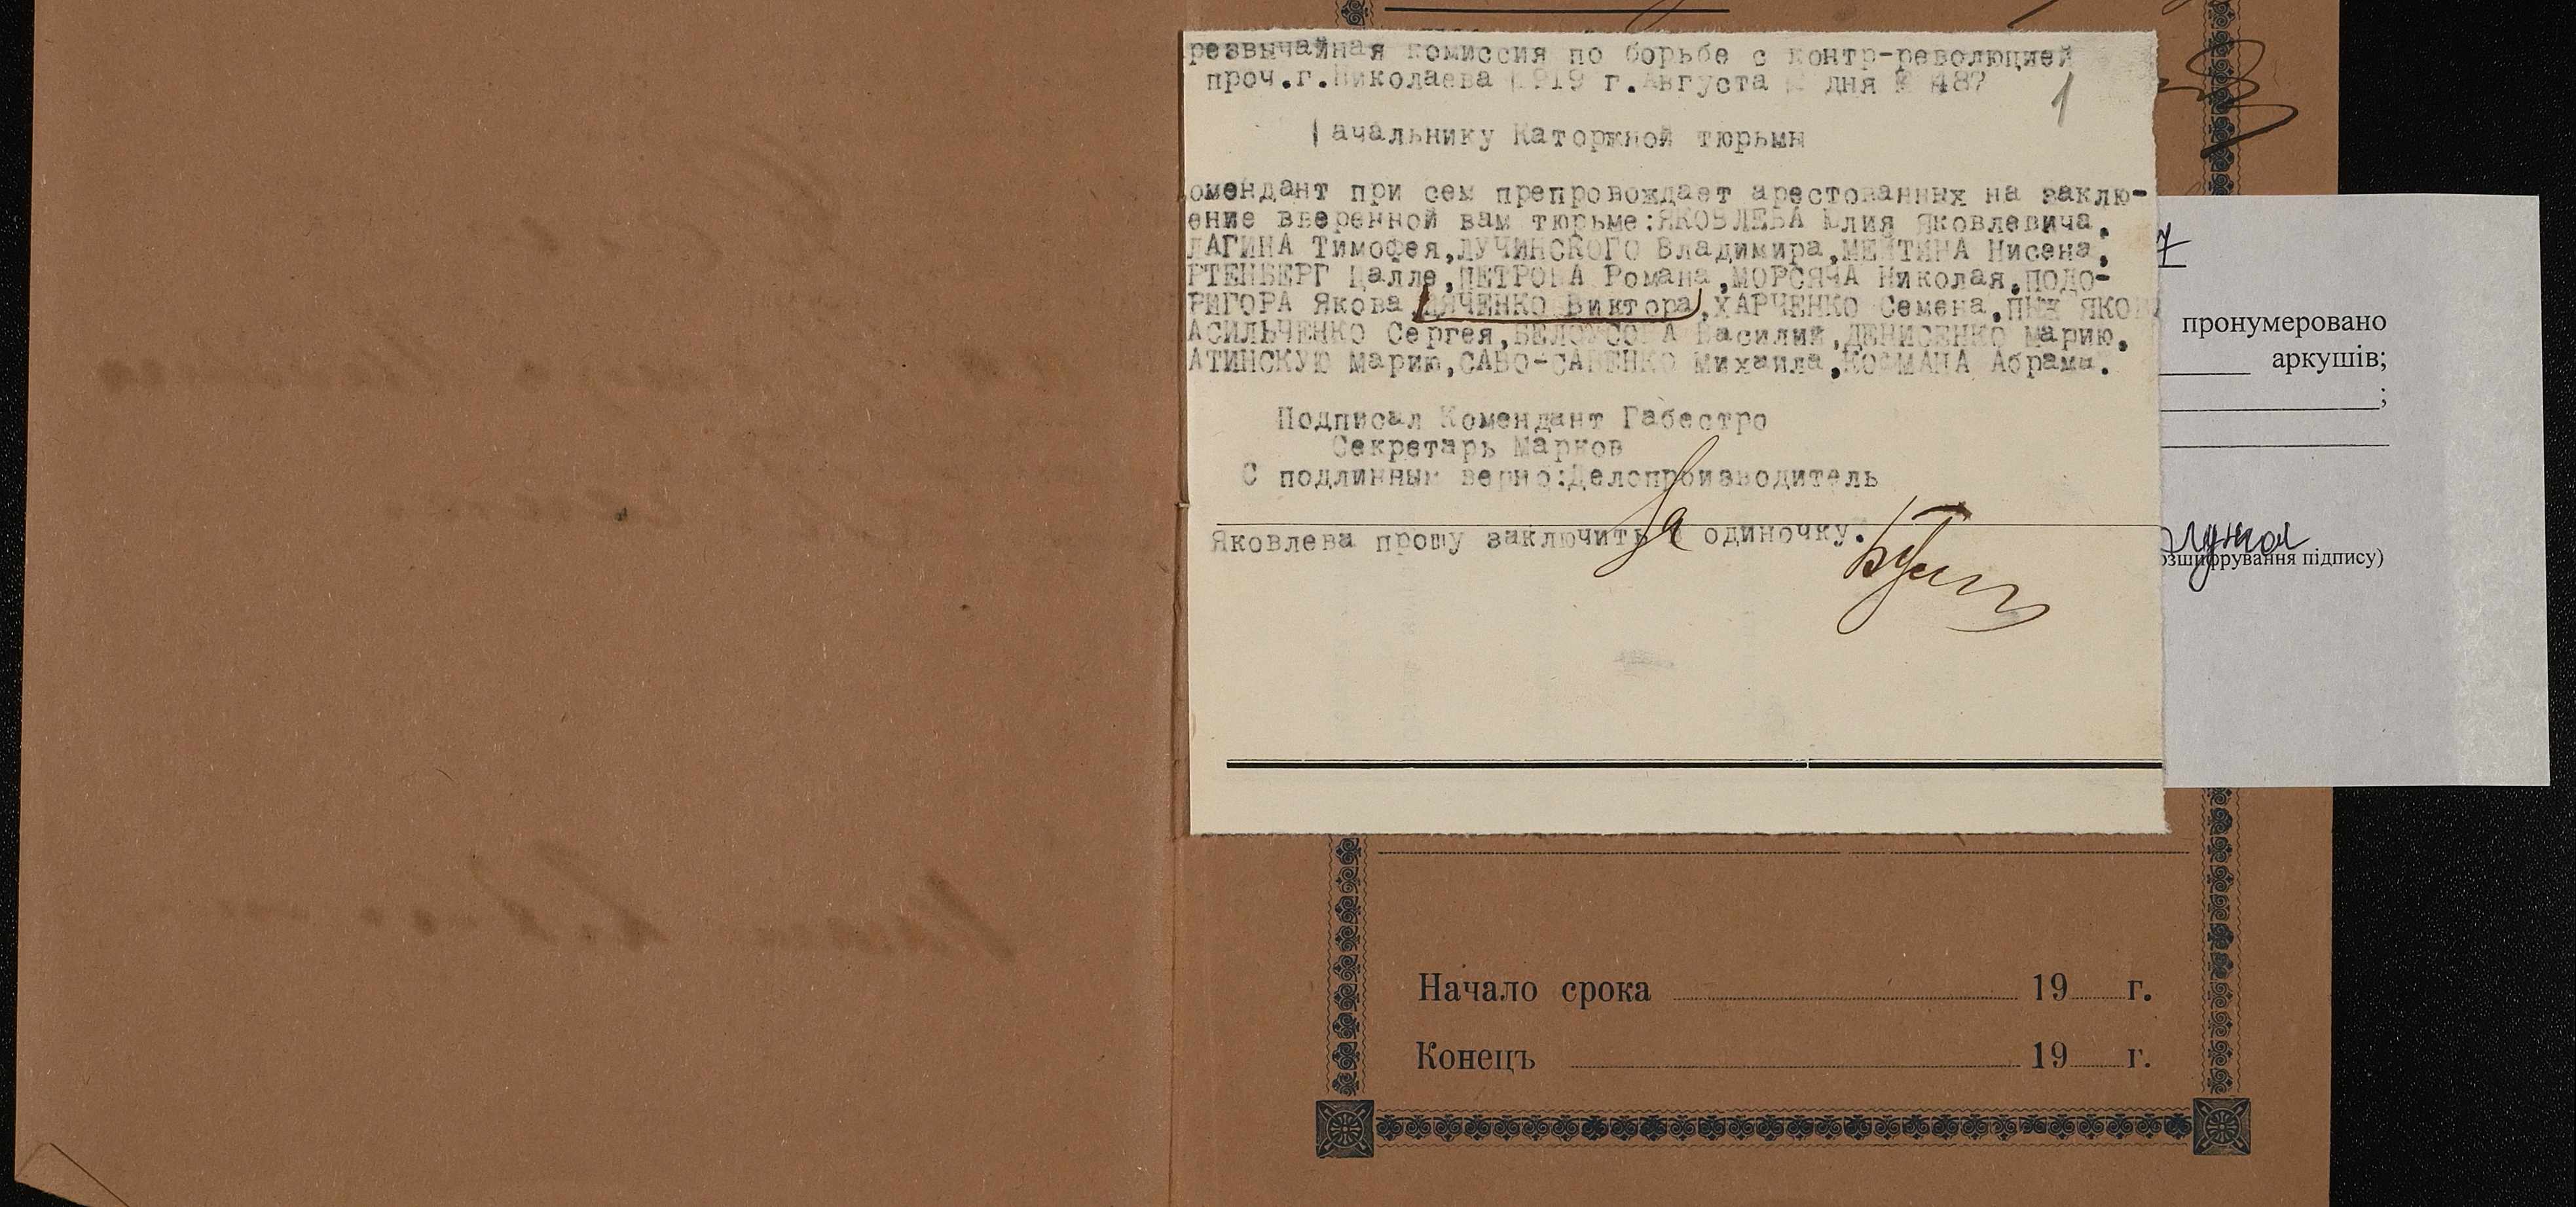 резвычайная комиссия по борьбе с контр-революцией
проч.г.Николаева 1919 г.Августа дня № 487
1
ачальнику Каторжной тюрьмы
омендант при сем препровождает арестованных на заклю-
ение вверенной вам тюрьме:ЯКОВЛЕВА Юлия Яковлевича,
ЛАГИНА Тимофея,ЛУЧИНСКОГО Владимира,МЕЙТИНА Нисена,
РТЕНБЕРГ Цалле,ПЕТРОВА Романа,МОРСЯЧА Николая,ПОДО-
РИГОРА Якова,ДЯЧЕНКО Виктора,ХАРЧЕНКО Семена,ПЫЖ ЯКОВ
АСИЛЬЧЕНКО Сергея,БЕЛОУСОВА Василия,ДЕНИСЕНКО Марию,
АТИНСКУЮ Марию,САВО-САВЕНКО Михаила,КОФМАНА Абрама.
Подписал Комендант Габестро
Секретарь Марков
С подлинным верно:Делопроизводитель
Яковлева прошу заключить в одиночку.
За
7
пронумеровано
аркушів;
;
озшифрування підпису)
Начало срока 19 г.
Конецъ 19 г.